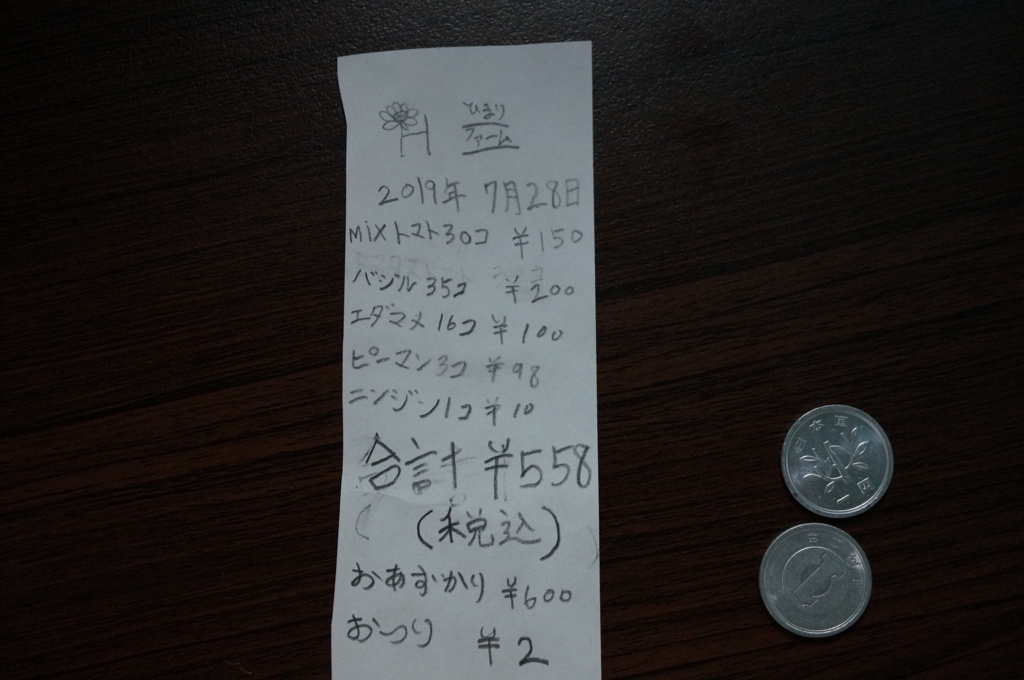 ひまり
ファーム
2019年 7月28日
MIXトマト30コ ¥150
バジル35コ ¥200
エダマメ16コ ¥100
ピーマン3コ ¥98
ニンジン1コ ¥10
合計 ¥558
(税込)
おあずかり ¥600
おつり ¥2
日本国
一
1